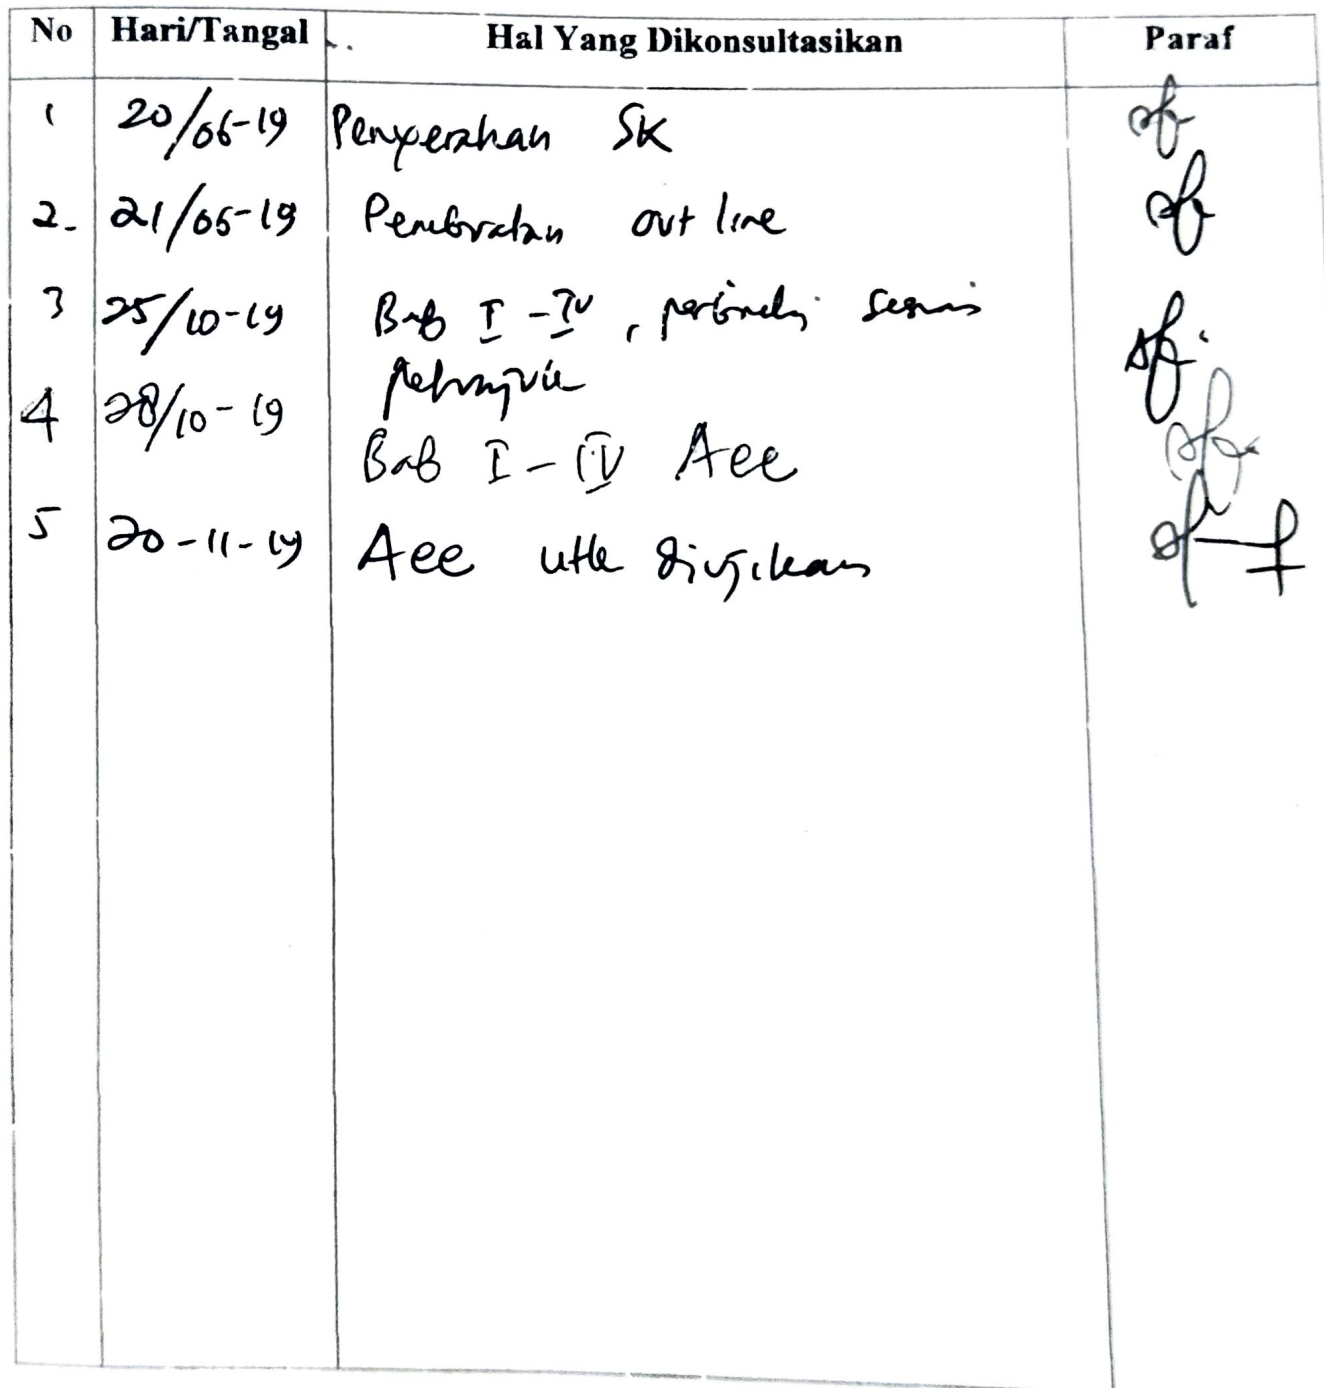 No Hari/Tangal Hal Yang Dikonsultasikan Paraf
1 20/06-19 Penyerahan SK
2- 21/06-19 Pembuatan out line
3 25/10-19 Bab I - IV, perbaiki sesuai
petunjuk
4 28/10-19
Bab I - IV Acc
5 20-11-19 Acc utk diujikan